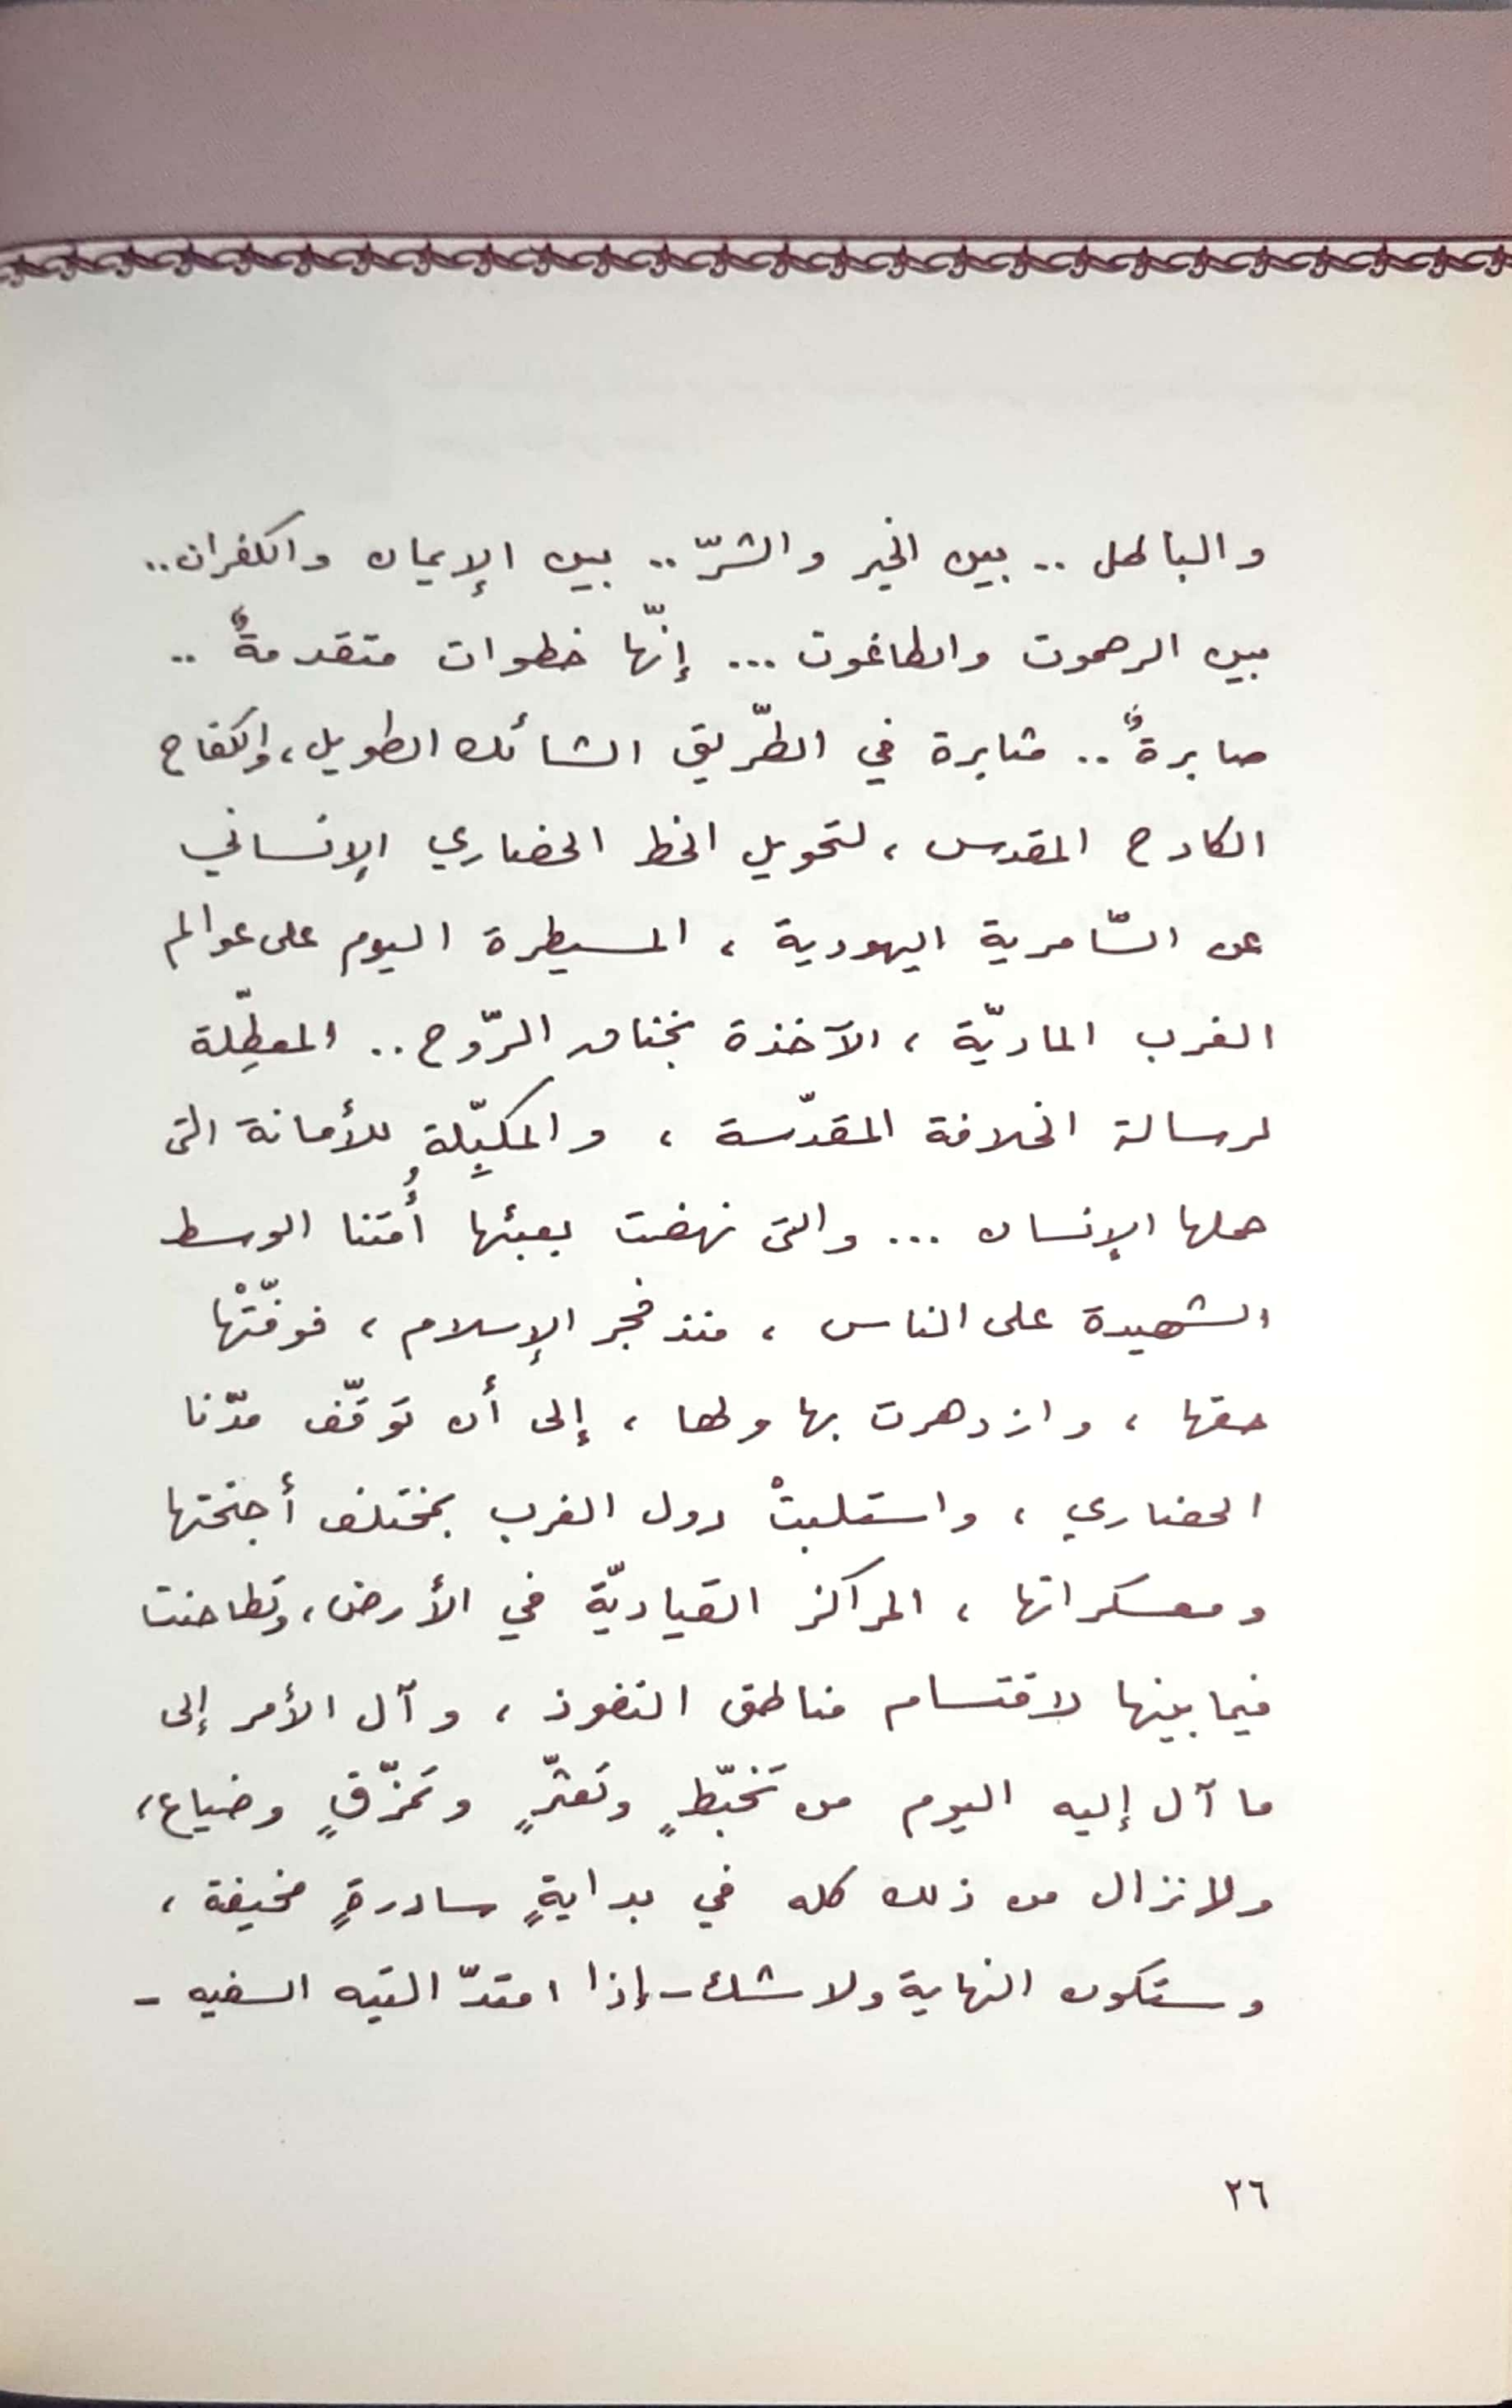 والباطل .. بين الخير والشرّ .. بين الإيمان والكفران ..
بين الرحموت والطاغوت ... إنّها خطوات متقدمةٌ ..
صابرةٌ .. مثابرة في الطّريق الشائك الطويل، والكفاح
الكادح المقدس ، لتحويل الخط الحضاري الإنساني
عن السّامرية اليهودية ، المسيطرة اليوم على عوالم
الغرب الماديّة ، الآخذة بخناق الرّوح .. المعطِّلة
لرسالة الخلافة المقدّسة ، والمكبِّلة للأمانة التي
حملها الإنسان ... والتي نهضت بعبئها أُمتنا الوسط
الشهيدة على الناس ، منذ فجر الإسلام ، فوفّتْها
حقها ، وازدهرت بها ولها ، إلى أن توَقّف مدّنا
الحضاري ، واستلبتْ دول الغرب بمختلف أجنحتها
ومعسكراتها ، المراكز القياديّة في الأرض، وتَطاحنت
فيما بينها لاقتسام مناطق النفوذ ، وآل الأمر إلى
ما آل إليه اليوم من تَخبّطٍ وتَعثّرٍ وتَمزّقٍ وضياع،
ولا نزال من ذلك كله في بدايةٍ سادرةٍ مخيفة ،
وستكون النهاية ولا شك - إذا امتدّ التيه السفيه -
٢٦